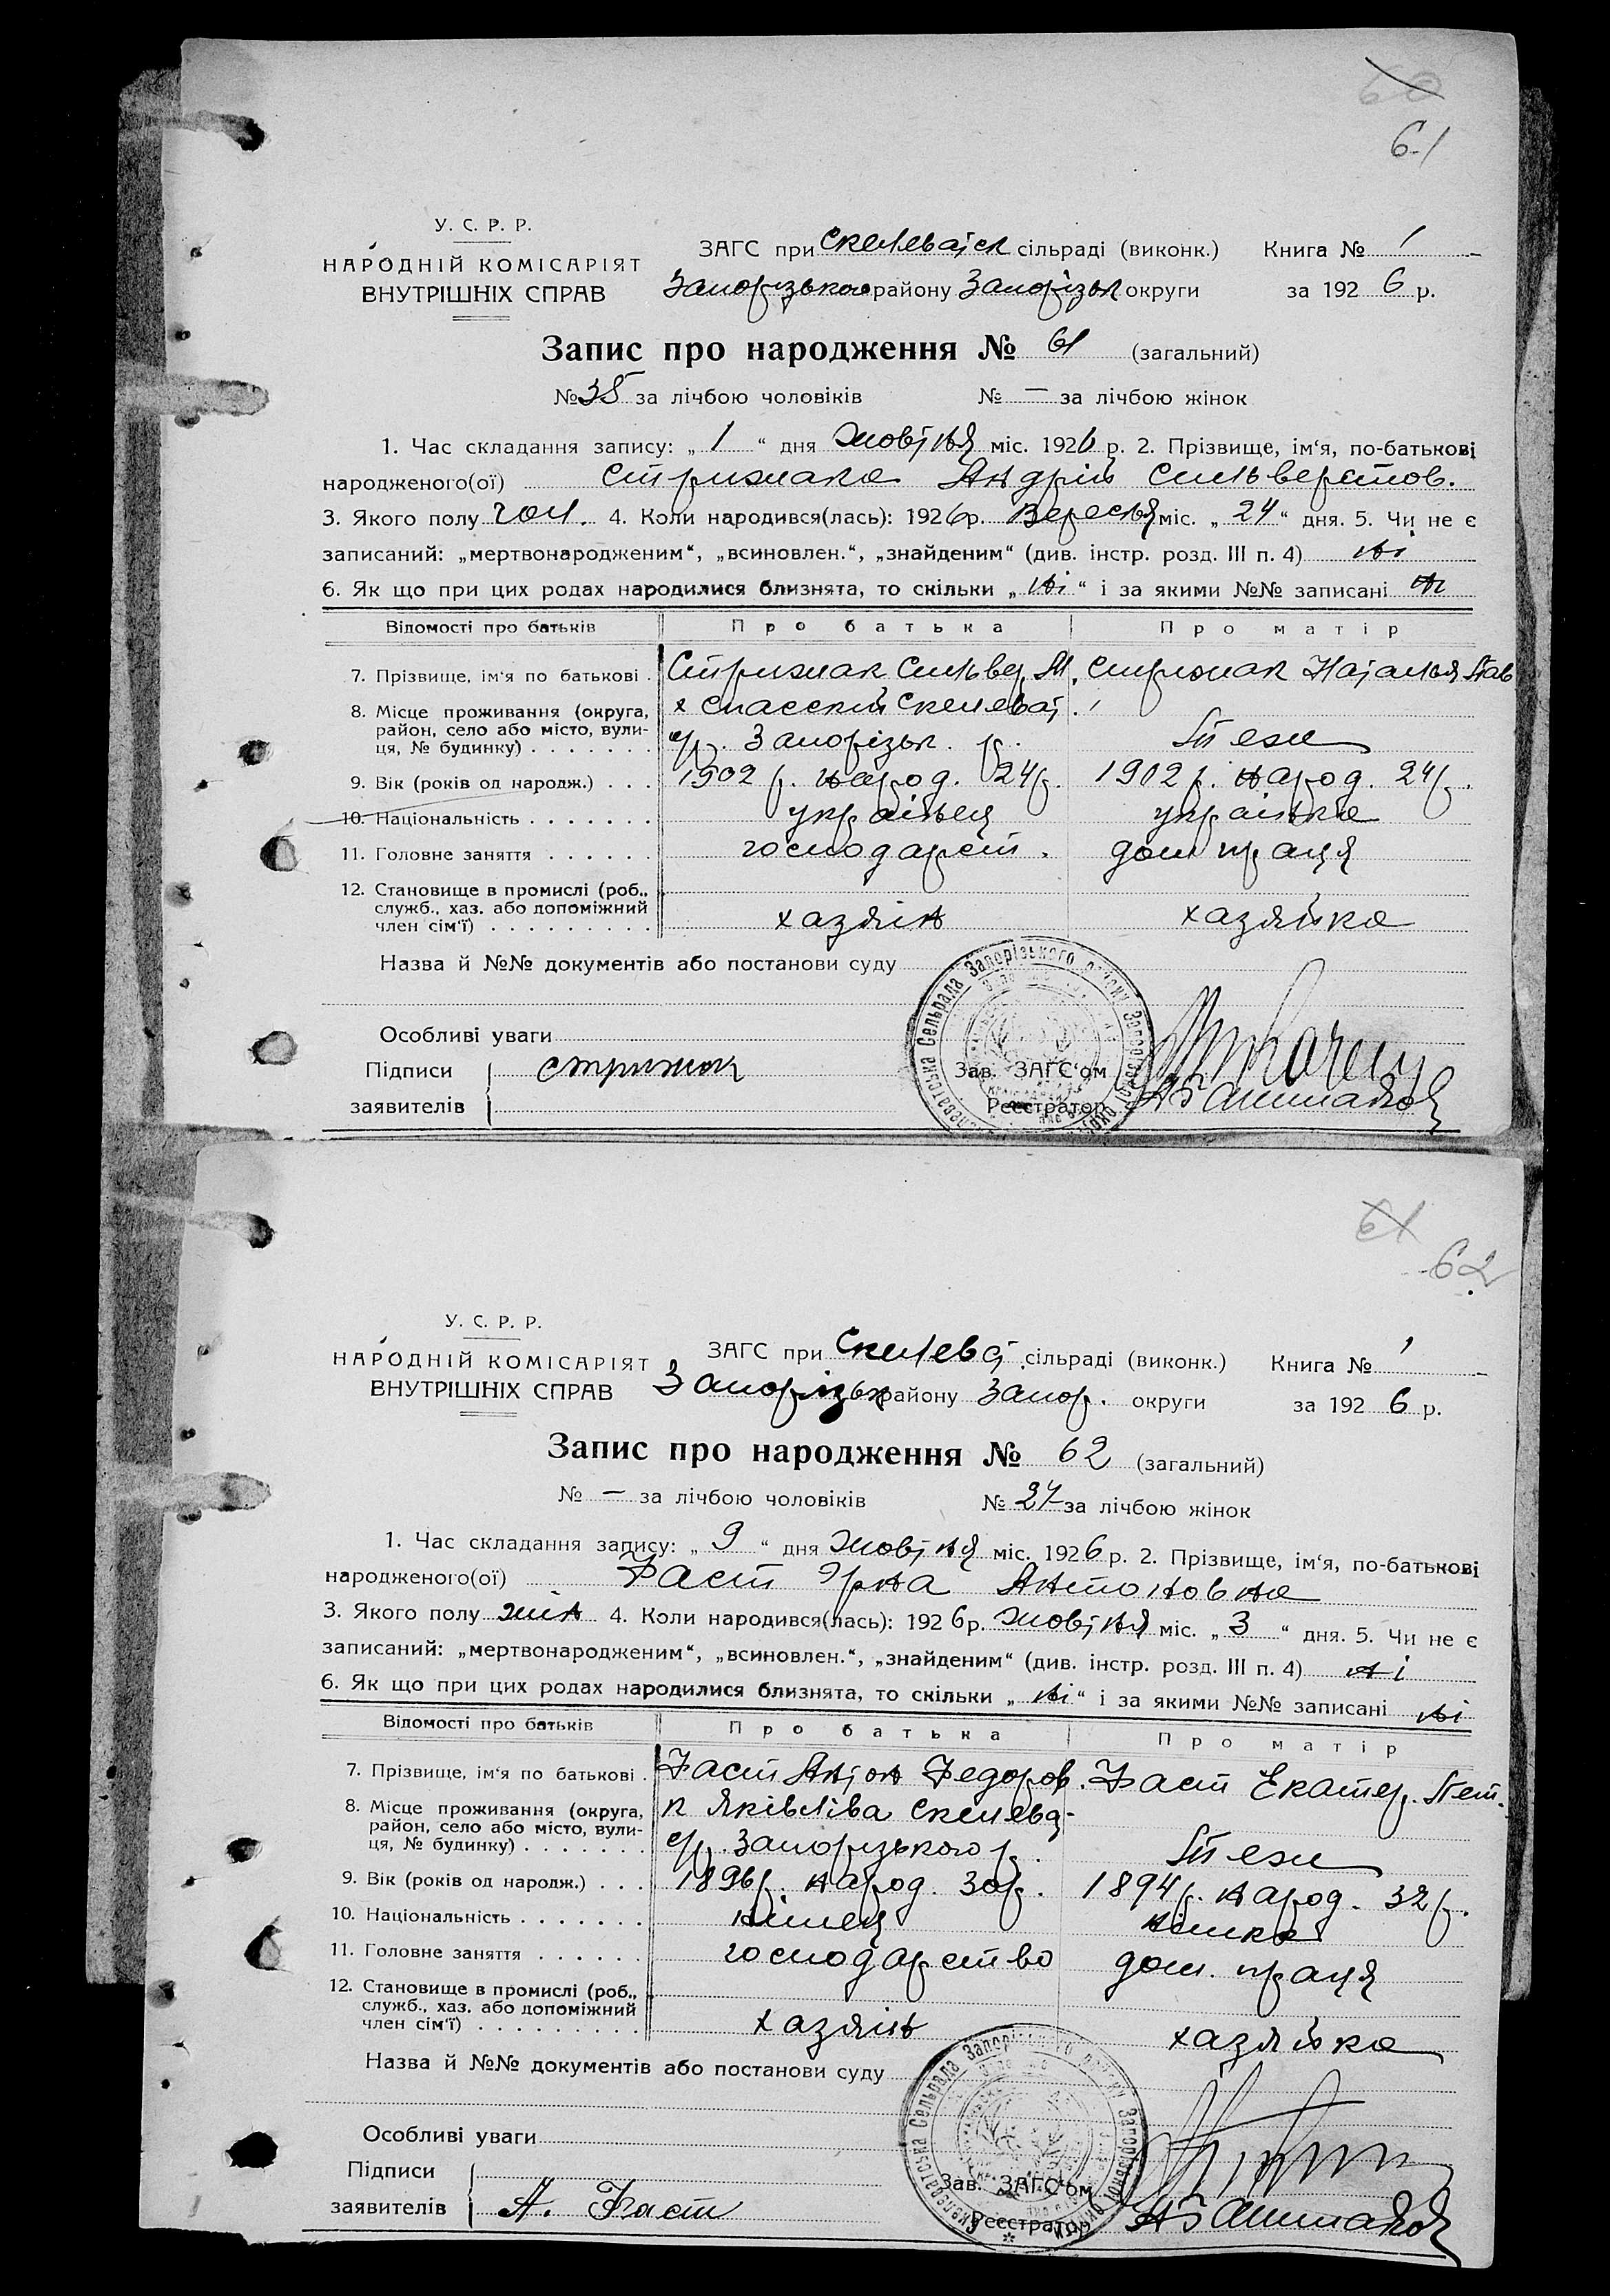 60
61
У. С. Р. Р.
НАРОДНІЙ КОМІСАРІЯТ
ВНУТРІШНІХ СПРАВ
ЗАГС при Скелеват сільраді (виконк.) Книга № 1
Запорізького району Запорізьк округи за 1926 р.
Запис про народження № 61 (загальний)
№ 35 за лічбою чоловіків № — за лічбою жінок
1. Час складання запису: „1“ дня жовтня міс. 1926 р. 2. Прізвище, ім‘я, по-батькові
народженого(ої) Стрижака Андрій Сильверстов.
3. Якого полу чол. 4. Коли народився(лась): 1926 р. Вересня міс. „24“ дня. 5. Чи не є
записаний: „мертвонародженим“, „всиновлен.“, „знайденим“ (див. інстр. розд. III п. 4) ні
6. Як що при цих родах народилися близнята, то скільки „ні“ і за якими №№ записані ні
Відомості про батьків Про батька Про матір
7. Прізвище, ім‘я по батькові . Стрижак Сильвер. М. Стрижак Наталья Пав
8. Місце проживання (округа, х Спасский Скелеват.
район, село або місто, вули-
ця, № будинку) . . . . . . . с/р. Запорізьк. р. Теж
9. Вік (років од народж.) . . . 1902 р. народ. 24 р. 1902 р. народ. 24 р.
10. Національність . . . . . . . українец українка
11. Головне заняття . . . . . . господарст. дом праця
12. Становище в промислі (роб.,
служб., хаз. або допоміжний
член сім‘ї) . . . . . . . . . хазяїн хазяйка
Назва й №№ документів або постанови суду
Особливі уваги
Підписи Стрижак
заявителів
Зав. ЗАГС‘ом
Реєстратор
Сельрада Запорізького району
61
62
У. С. Р. Р.
НАРОДНІЙ КОМІСАРІЯТ
ВНУТРІШНІХ СПРАВ
ЗАГС при Скелеват сільраді (виконк.) Книга № 1
Запорізьк району Запор. округи за 1926 р.
Запис про народження № 62 (загальний)
№ — за лічбою чоловіків № 27 за лічбою жінок
1. Час складання запису: „9“ дня жовтня міс. 1926 р. 2. Прізвище, ім‘я, по-батькові
народженого(ої) Фаст Эрна Антоновна
3. Якого полу жін 4. Коли народився(лась): 1926 р. жовтня міс. „3“ дня. 5. Чи не є
записаний: „мертвонародженим“, „всиновлен.“, „знайденим“ (див. інстр. розд. III п. 4) ні
6. Як що при цих родах народилися близнята, то скільки „ні“ і за якими №№ записані ні
Відомості про батьків Про батька Про матір
7. Прізвище, ім‘я по батькові . Фаст Антон Федоров. Фаст Екатер. Пет.
8. Місце проживання (округа, к Яківліва Скелеват
район, село або місто, вули-
ця, № будинку) . . . . . . . с/р. Запорізького р. Теж
9. Вік (років од народж.) . . . 1896 р. народ. 30 р. 1894 р. народ. 32 р.
10. Національність . . . . . . . німец німка
11. Головне заняття . . . . . . господарство дом. праця
12. Становище в промислі (роб.,
служб., хаз. або допоміжний
член сім‘ї) . . . . . . . . . хазяїн хазяйка
Назва й №№ документів або постанови суду
Особливі уваги
Підписи
заявителів А. Фаст
Зав. ЗАГС‘ом
Реєстратор
Скелеватська Сельрада Запорізького району